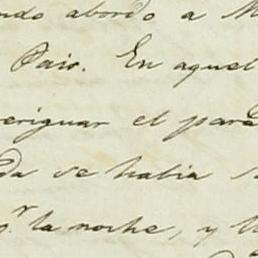 ndo abordo a M
Pais. En aquel
eriguar el para
da se habia
pr la noche, y